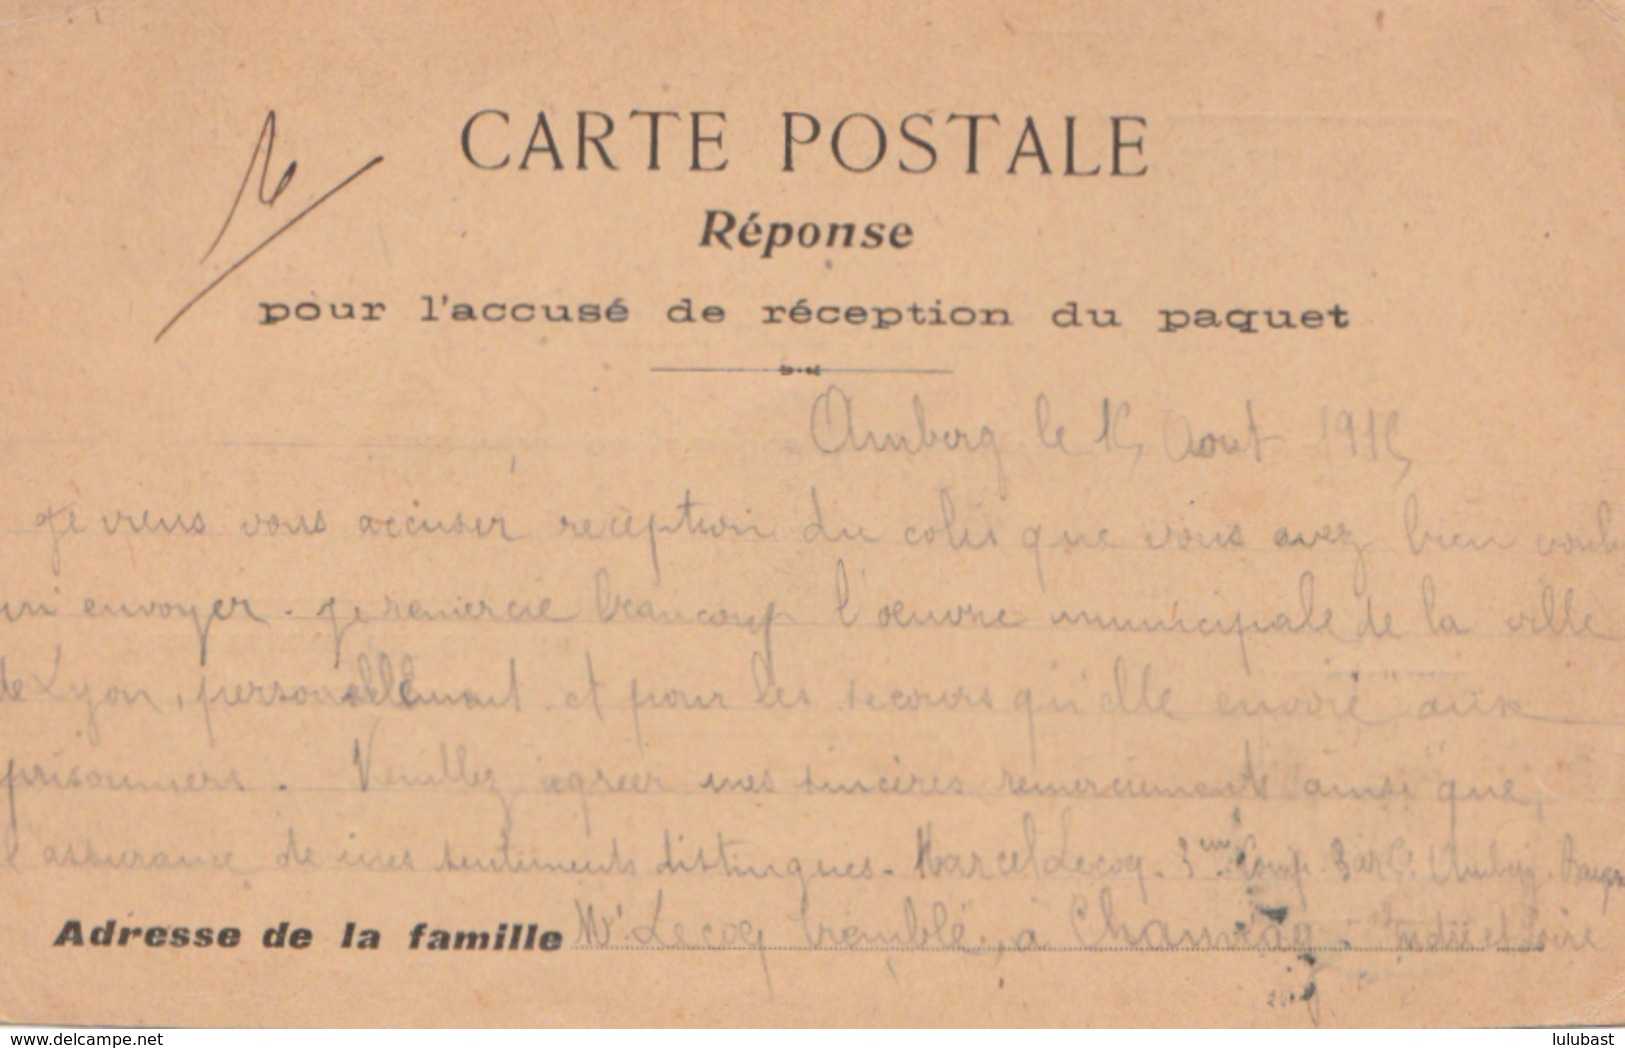 CARTE POSTALE
Réponse
pour l'accusé de réception du paquet
Amberg le 15 Aout 1915
je viens vous accuser reception du colis que vous avez bien voulu
m'envoyer. je remercie beaucoup l'oeuvre municipale de la ville
de Lyon, personellement et pour les secours qu'elle envoie aux
prisonniers. Veuillez agréer mes sincères remerciements ainsi que,
l assurance de mes sentiments distingués. Marcel Lecoq. 3eme Comp. Amberg
Adresse de la famille Mr Lecoq à Indre et Loire
www.delcampe.net
lulubast